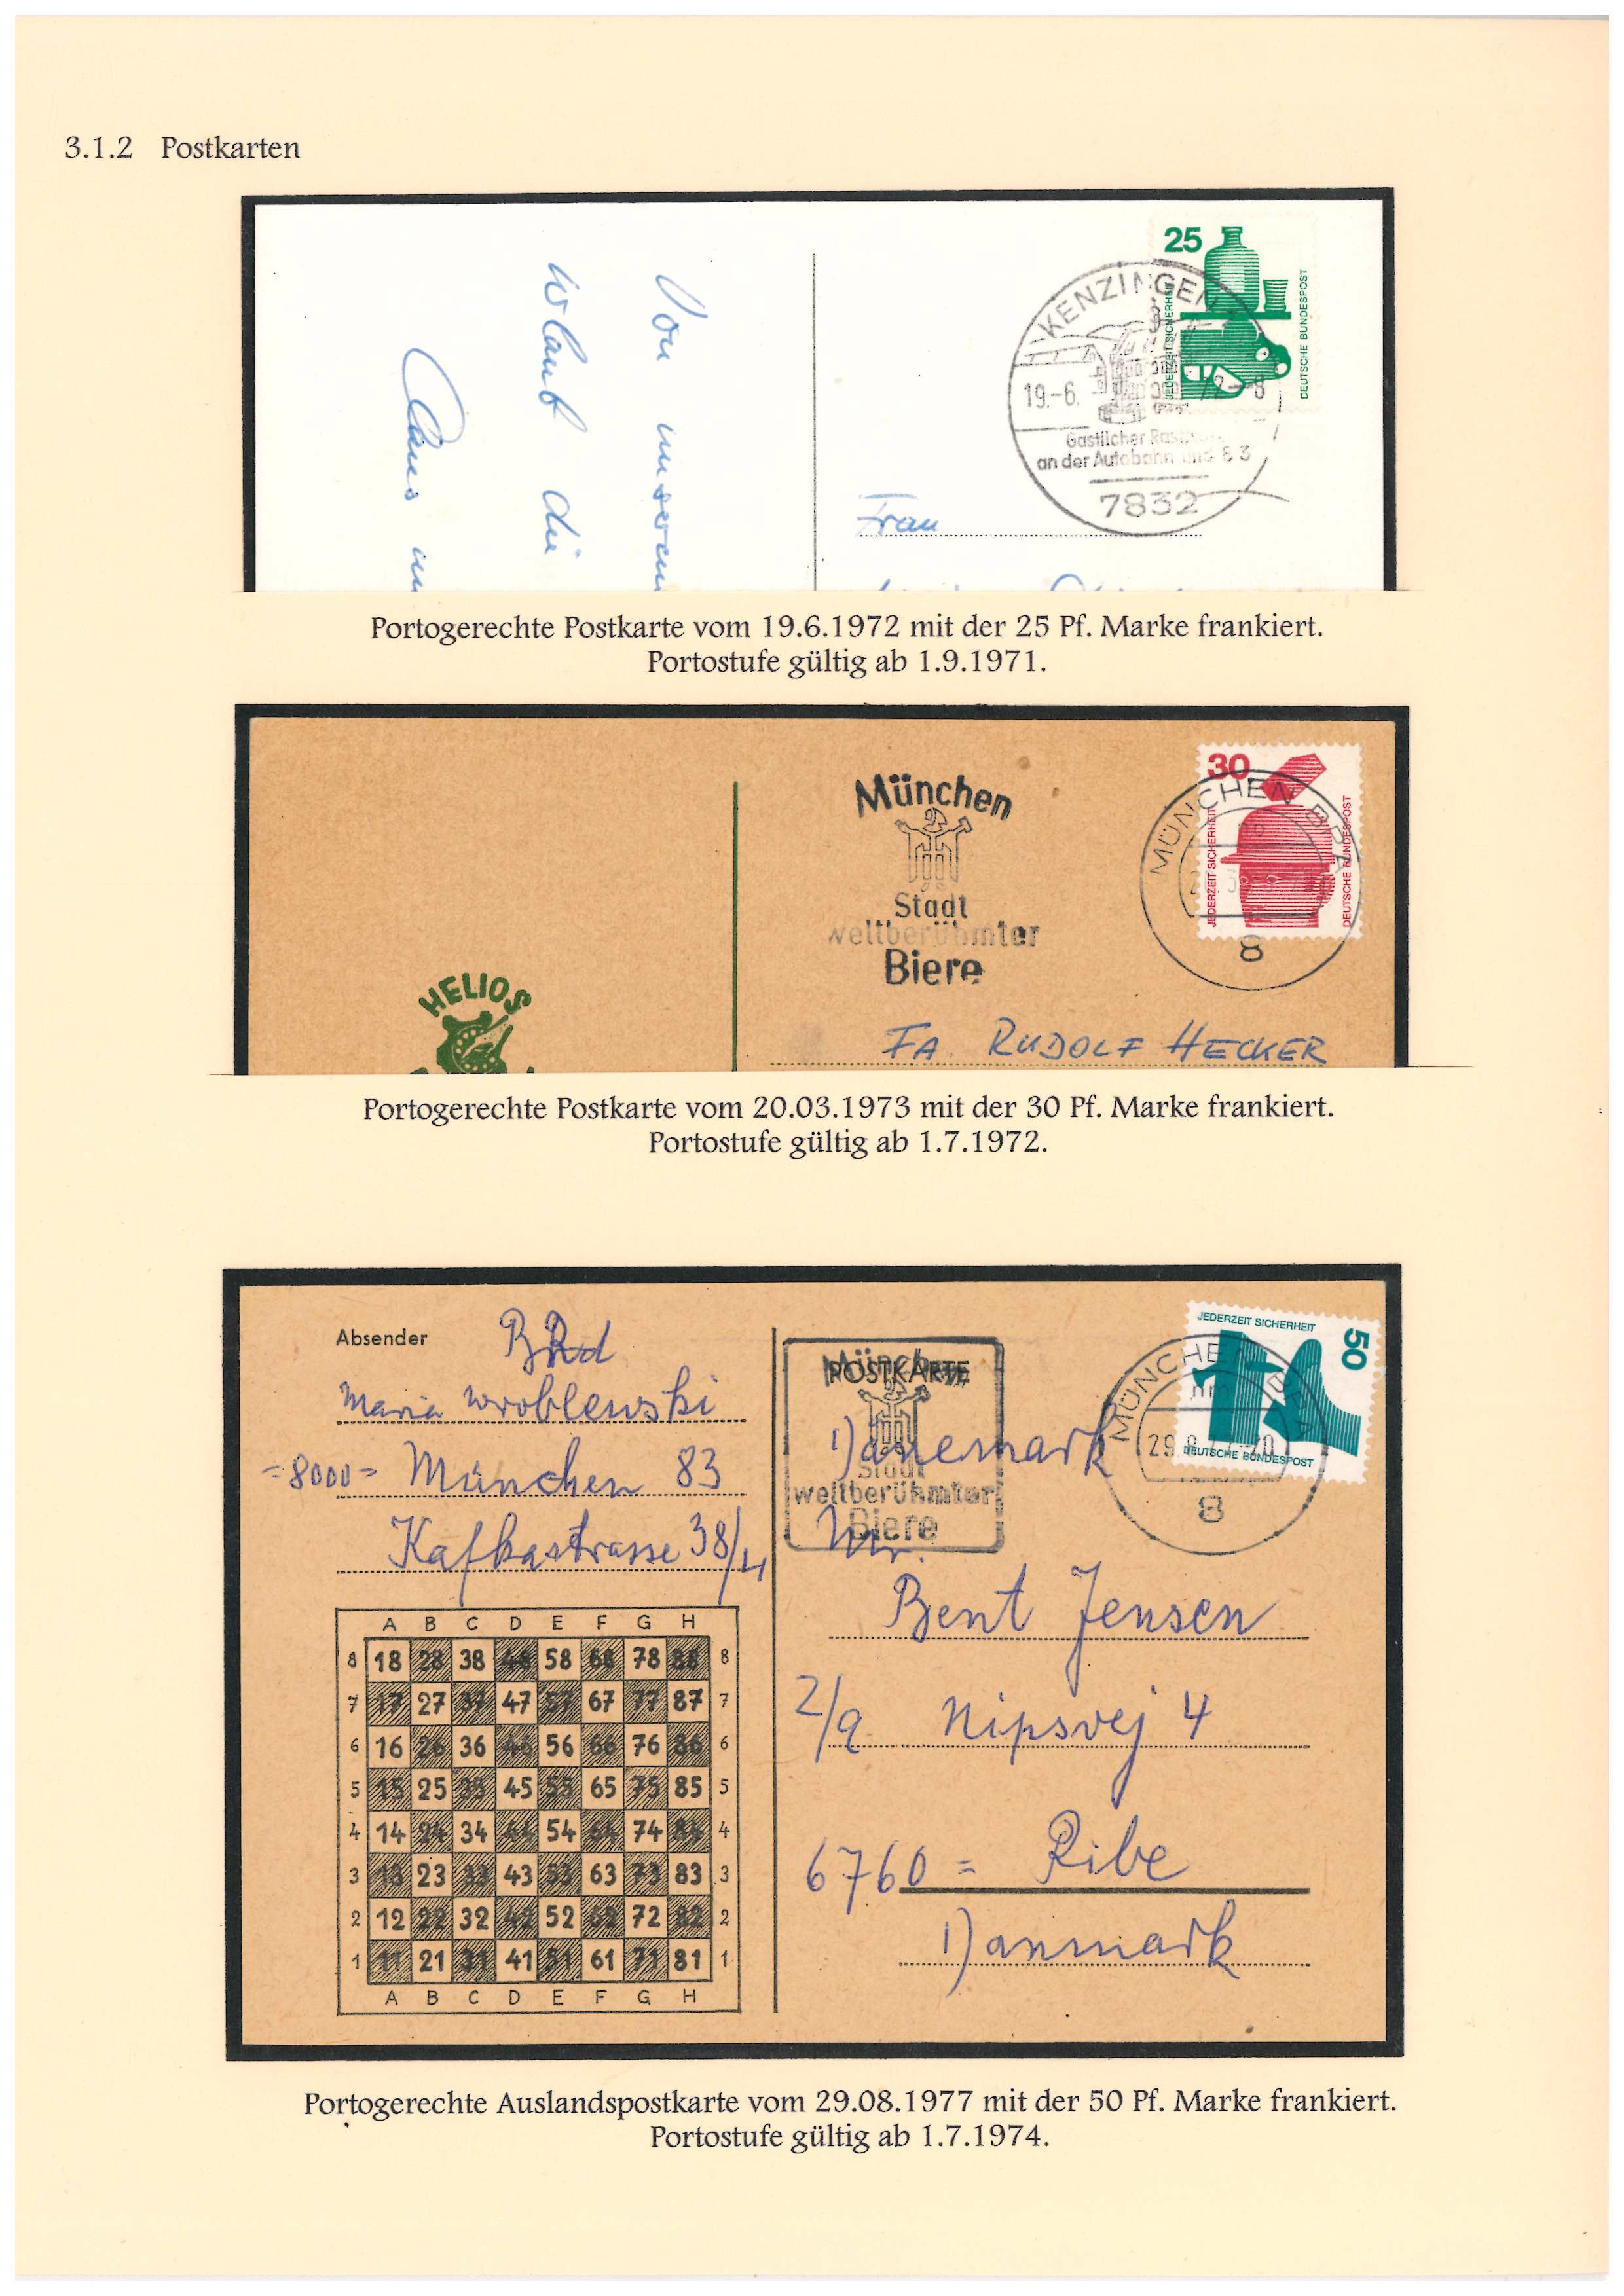 3.1.2 Postkarten
25
JEDERZEIT SICHERHEIT
DEUTSCHE BUNDESPOST
KENZINGEN
19.-6. 72-8
Gastlicher
an der Autobahn und B 3
7832
Von unseren
Frau
Portogerechte Postkarte vom 19.6.1972 mit der 25 Pf. Marke frankiert.
Portostufe gültig ab 1.9.1971.
München
Stadt
weltberühmter
Biere
30
JEDERZEIT SICHERHEIT
DEUTSCHE BUNDESPOST
MÜNCHEN BPA
8
HELIOS
FA. RUDOLF HECKER
Portogerechte Postkarte vom 20.03.1973 mit der 30 Pf. Marke frankiert.
Portostufe gültig ab 1.7.1972.
Absender BRd
Maria Wroblewski
=8000= München 83
Kafkastrasse 38/4
München
POSTKARTE
Stadt
weltberühmter
Biere
JEDERZEIT SICHERHEIT
50
DEUTSCHE BUNDESPOST
MÜNCHEN BPA
nm
29.8.77-20
8
Dänemark
Mr.
Bent Jensen
2/9 Nipsvej 4
6760 = Ribe
Danmark
A B C D E F G H
8 18 28 38 48 58 68 78 88 8
7 17 27 37 47 57 67 77 87 7
6 16 26 36 46 56 66 76 86 6
5 15 25 35 45 55 65 75 85 5
4 14 24 34 44 54 64 74 84 4
3 13 23 33 43 53 63 73 83 3
2 12 22 32 42 52 62 72 82 2
1 11 21 31 41 51 61 71 81 1
A B C D E F G H
Portogerechte Auslandspostkarte vom 29.08.1977 mit der 50 Pf. Marke frankiert.
Portostufe gültig ab 1.7.1974.